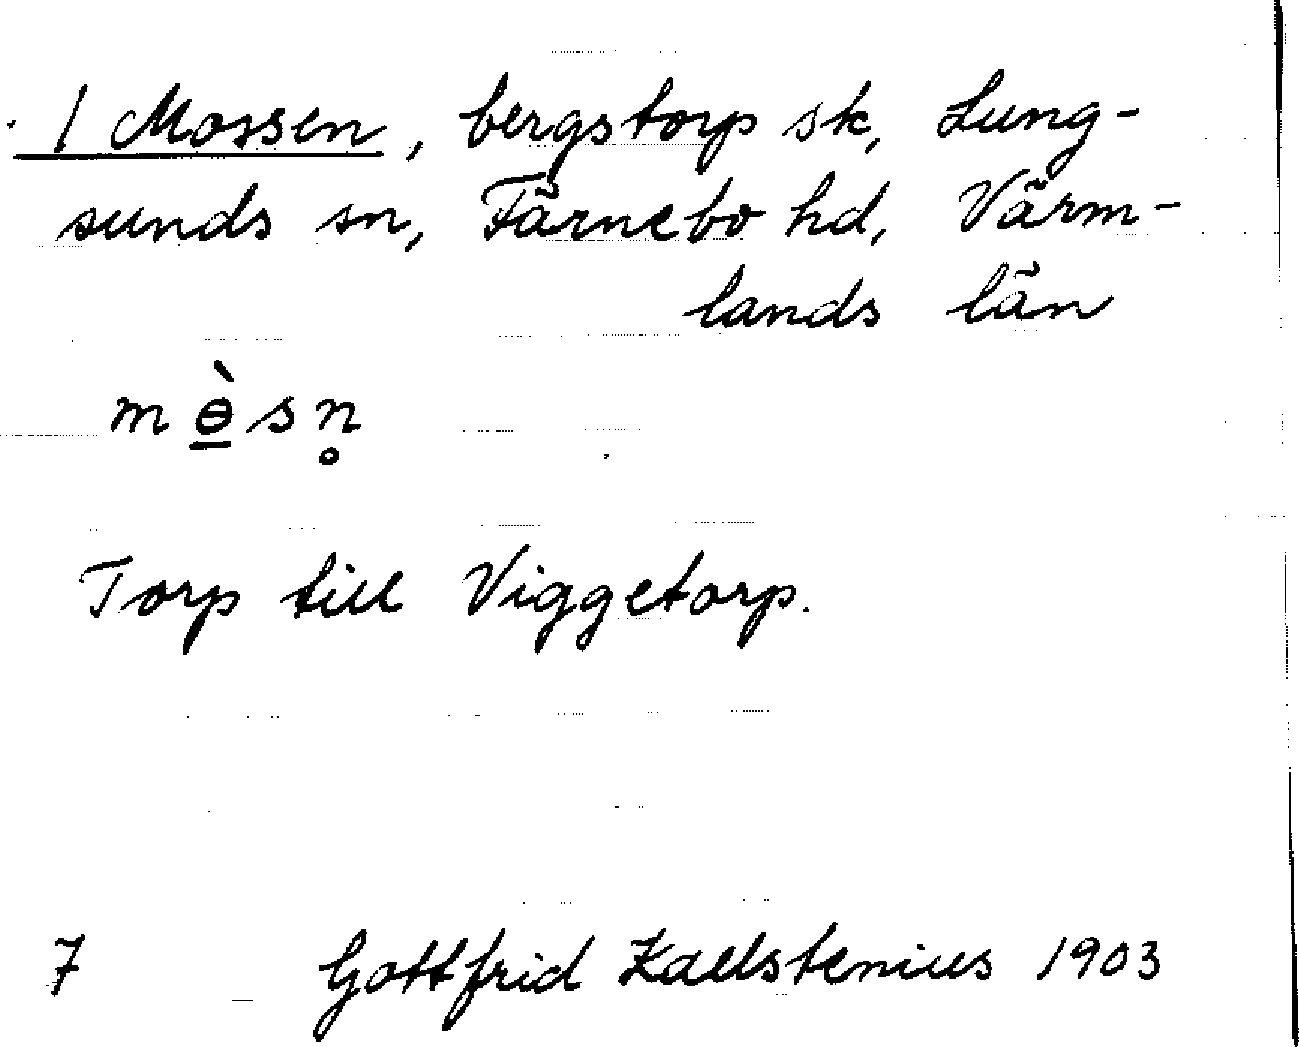 / Mossen, bergstorp sk, Lung-
sunds sn, Färnebo hd, Värm-
lands län
mɵ̠̀sn̥
Torp till Viggetorp.
7 Gottfrid Kallstenius 1903